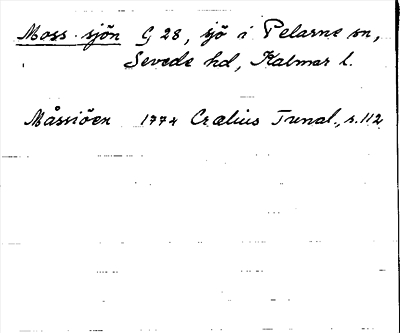 Moss sjön G 28, sjö i Pelarne sn,
Sevede hd, Kalmar l.
Måssiöen 1774 Crælius Tunal., s. 112